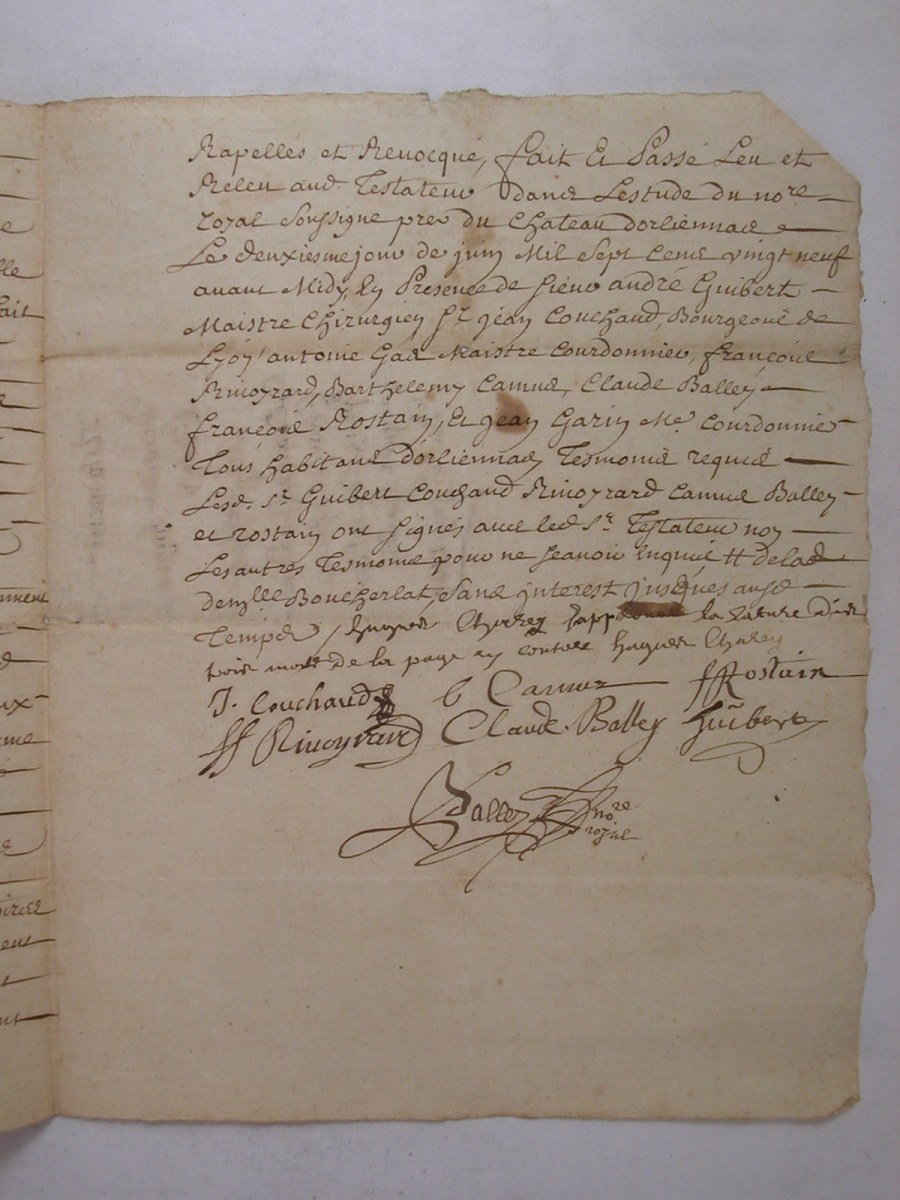 Rapellés et Revocqué, fait Et Passé Leu et
Releu aud. Testateur dans Lestude du nore
royal soussigne pres du Chateau dorliennas
Le deuxiesme jour de juin Mil Sept Cens vingt neuf
avant Midy, En Presence de sieur andré Guibert
Maistre Chirurgien Sr. jean Couchaud, Bourgeois de
Lyon, antoine Gas Maistre Courdonnier, françois
Rivoyrard, Barthelemy Camus, Claude Balley
françois Rostain, Et jean Garin Me. Courdonnier
Tous habitans dorliennas Tesmoins requis
Lesd. Sr. Guibert Couchaud Rivoyrard Camus Balley
et rostain ont signés avec led Sr. Testateur non
Les autres Tesmoins pour ne scavoir Enquis tt delad
demlle Boucherlat, Sans interest jusques aud
Temps / hugues Charey japprouve la rature
trois mots de la page en contre hugues Charey
J. Couchaud b Camus ff Rostain
ff Rivoyrard Claude. Balley Guibert
Balley nore
royal
lle
fait
nnent
ux-
ent